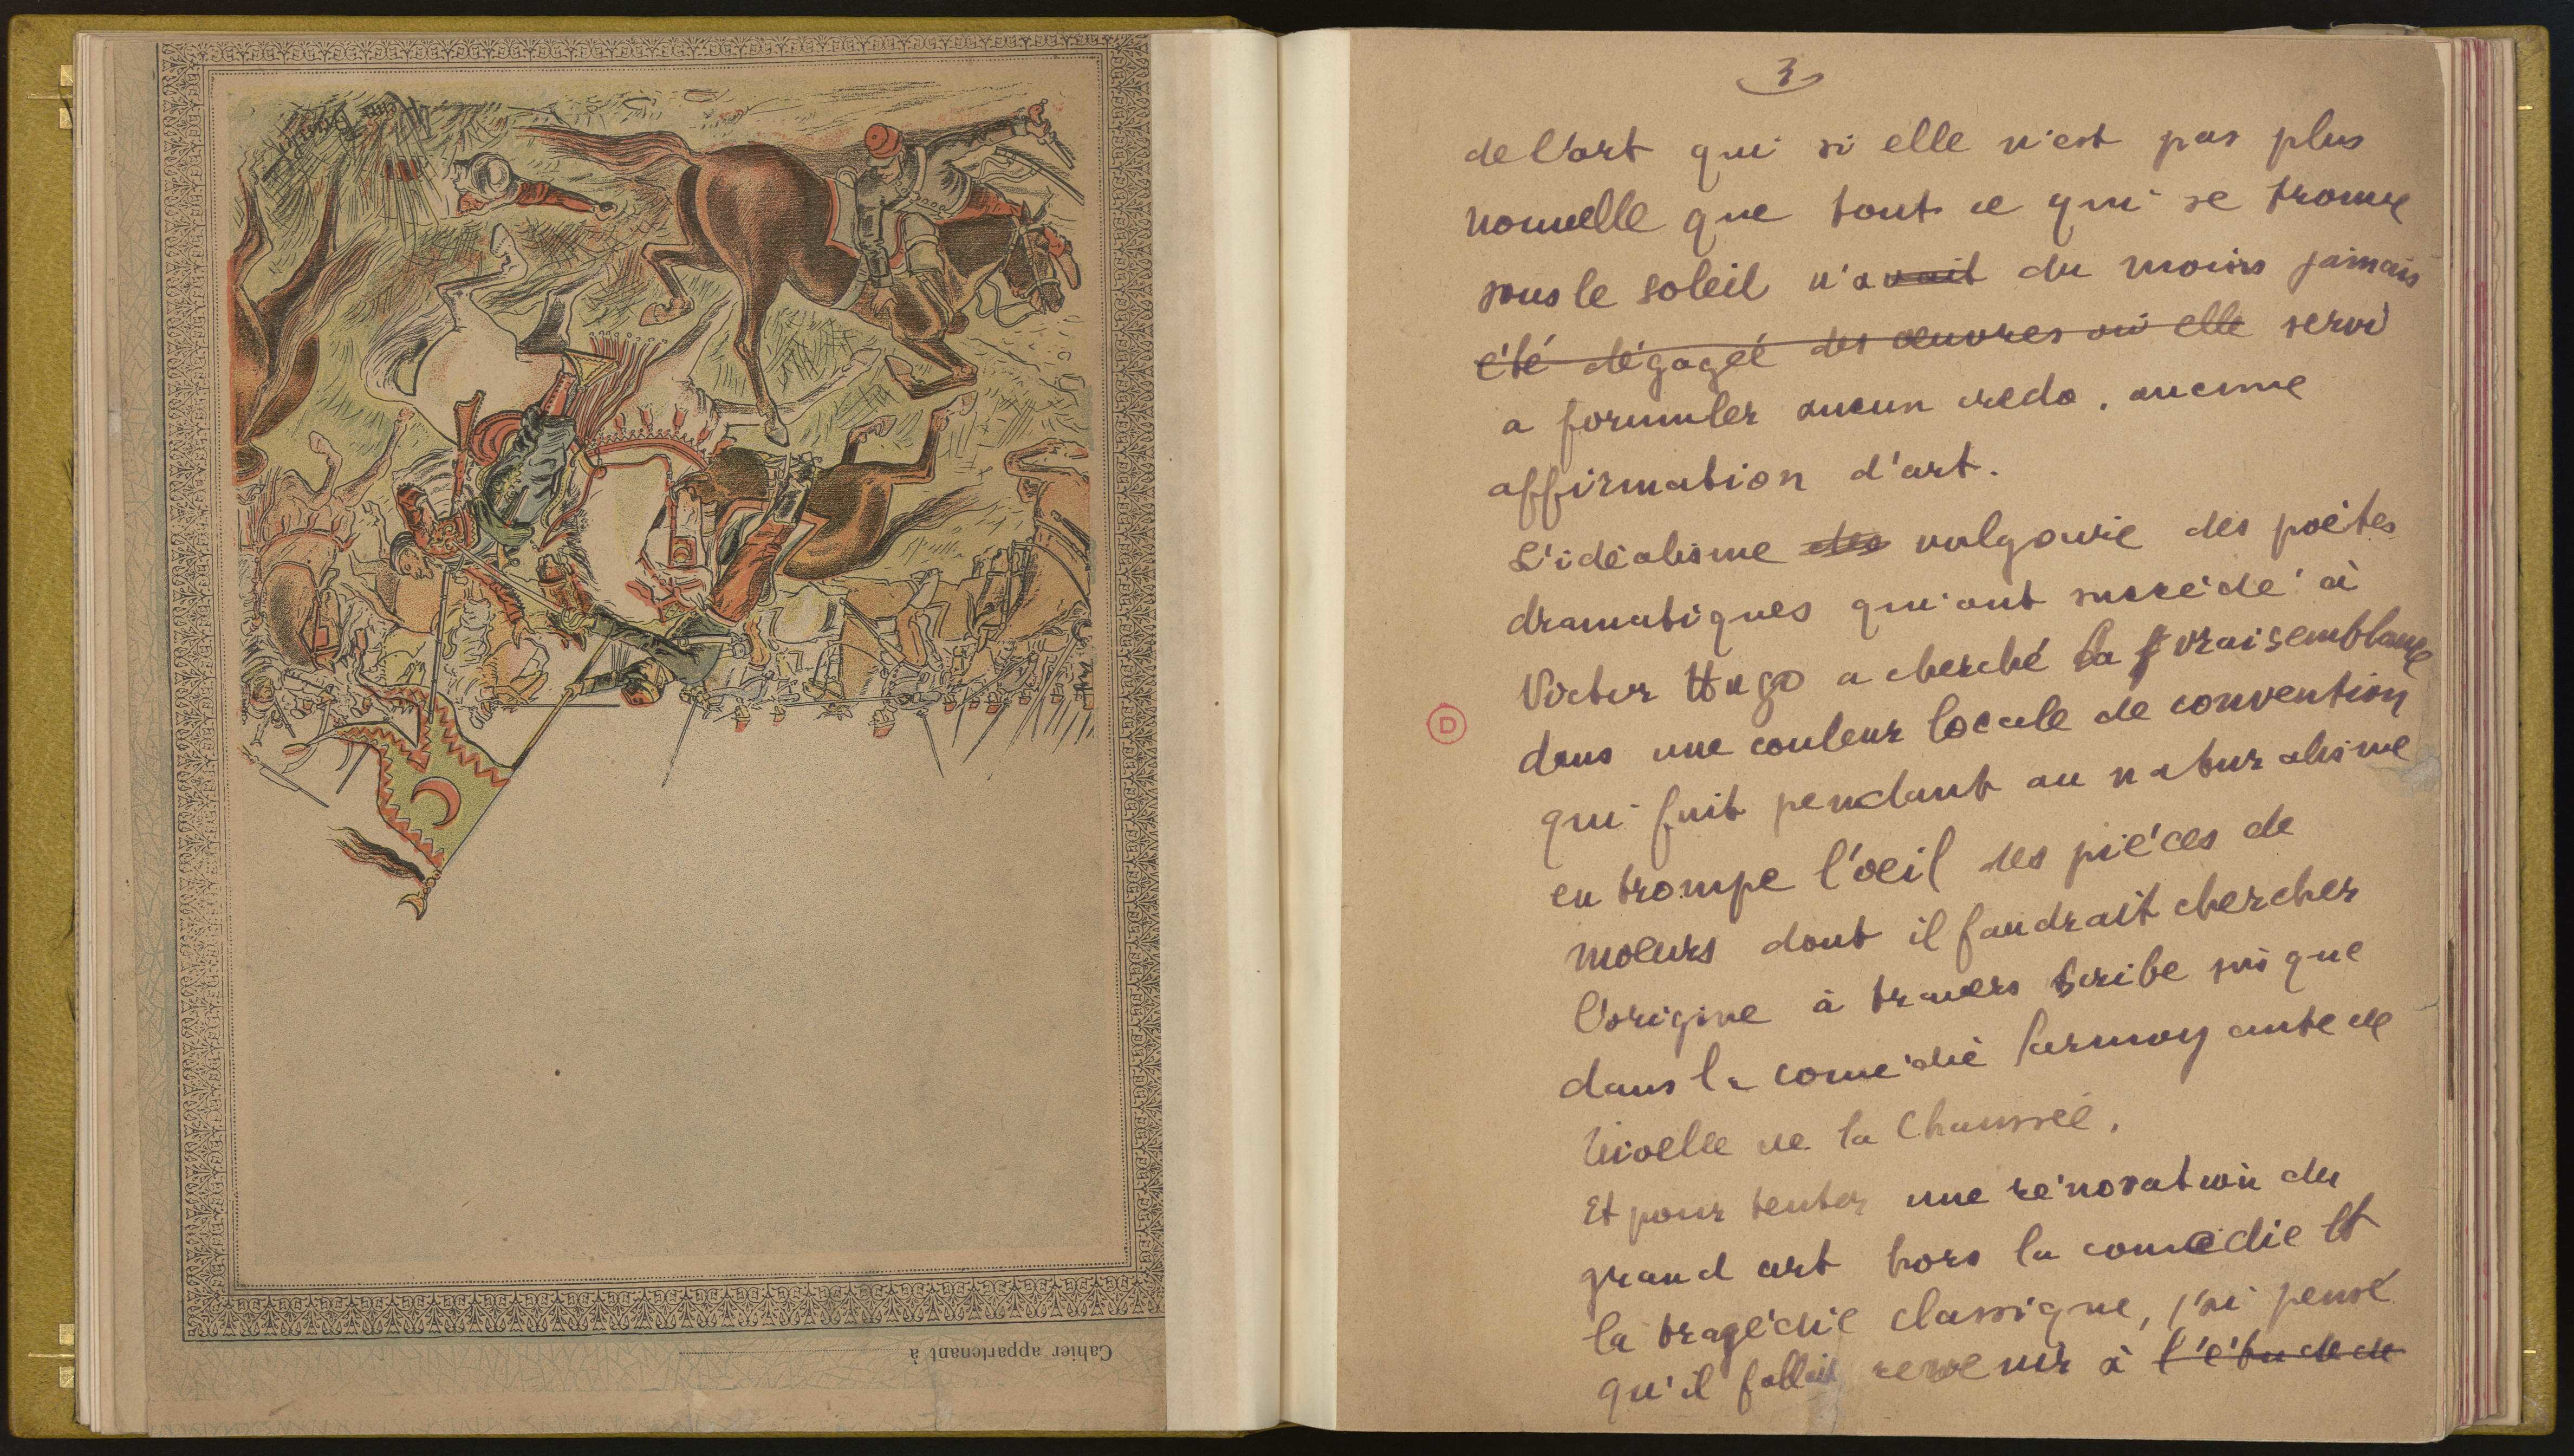 Cahier appartenant à
3
de l'art qui si elle n'est pas plus
nouvelle que tout ce qui se trouve
sous le soleil n'avait du moins jamais
été dégagée des œuvres où elle servi
a formuler aucun credo, aucune
affirmation d'art.
L'idéalisme des vulgaire des poètes
dramatiques qui ont succédé à
Victor Hugo a cherché la vraisemblance
D
dans une couleur locale de convention
qui fait pendant au naturalisme
en trompe l'œil des pièces de
mœurs dont il faudrait chercher
l'origine à travers Scribe jusque
dans la comédie larmoyante de
Nivelle de la Chaussée.
Et pour tenter une rénovation du
grand art hors la comédie et
la tragédie classique, j'ai pensé
qu'il fallait revenir à l'étude de